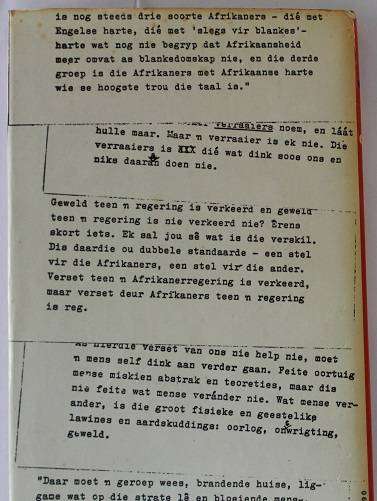 is nog steeds drie soorte Afrikaners - dié met
Engelse harte, dié met 'slegs vir blankes'-
harte wat nog nie begryp dat Afrikaansheid
meer omvat as blankedomskap nie, en die derde
groep is die Afrikaners met Afrikaanse harte
wie se hoogste trou die taal is."
verraaiers noem, en láát
hulle maar. Maar 'n verraaier is ek nie. Die
verraaiers is XXX dié wat dink soos ons en
niks daaran doen nie.
Geweld teen 'n regering is verkeerd en geweld
teen 'n regering is nie verkeerd nie? Êrens
skort iets. Ek sal jou sê wat is die verskil.
Dis daardie ou dubbele standaarde - een stel
vir die Afrikaners, een stel vir die ander.
Verset teen 'n Afrikanerregering is verkeerd,
maar verset deur Afrikaners teen 'n regering
is reg.
As hierdie verset van ons nie help nie, moet
'n mens self dink aan verder gaan. Feite oortuig
mense miskien abstrak en teoreties, maar dis
nie feite wat mense veránder nie. Wat mense ver-
ander, is die groot fisieke en geestelike
lawines en aardskuddings: oorlog, ontwrigting,
geweld.
"Daar moet 'n geroep wees, brandende huise, lig-
game wat op die strate lê en bloeiende mens-